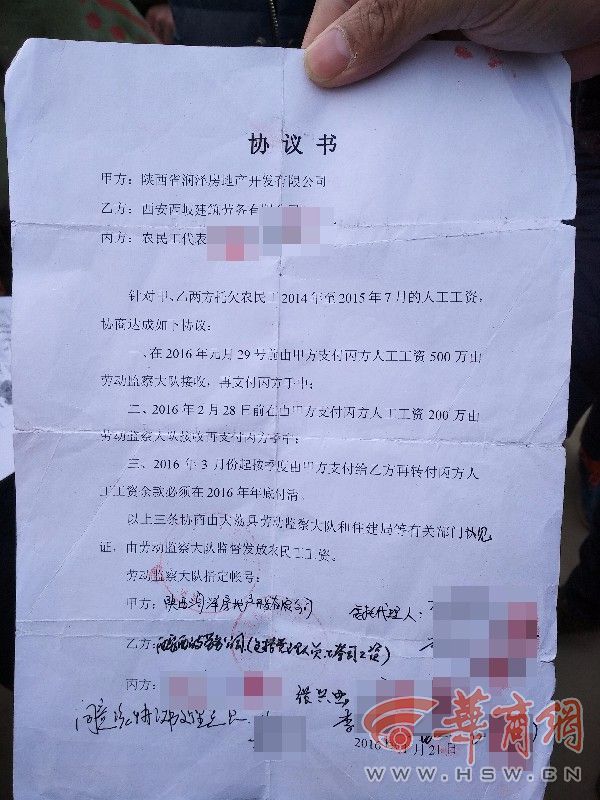 协 议 书
甲方：陕西省润泽房地产开发有限公司
乙方：西安西岐建筑劳务有
丙方：农民工代表
针对甲、乙两方托欠农民工2014年至2015年7月的人工工资，
协商达成如下协议：
一、在2016年元月29号前由甲方支付丙方人工工资500万由
劳动监察大队接收，再支付丙方手中；
二、2016年2月28日前在由甲方支付丙方人工工资200万由
劳动监察大队接收再支付丙方手中；
三、2016年3月份起按季度由甲方支付给乙方再转付丙方人
工工资余款必须在2016年年底付清。
以上三条协商由大荔县劳动监察大队和住建局等有关部门
证，由劳动监察大队监督发放农民工工资。
劳动监察大队指定帐号：
甲方：陕西润泽房地产开发有限公司 委托代理人：
乙方：
丙方： 张兴
李
2016年1月21日
华商网
WWW.HSW.CN